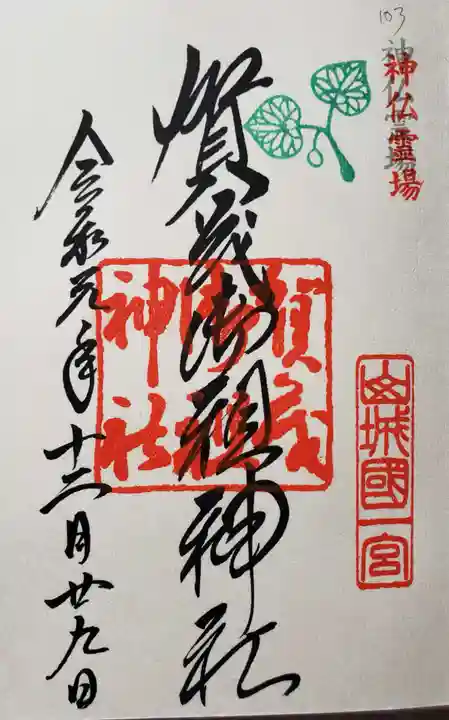 103
神仏霊場
神仏霊場
山城國一宮
賀茂御祖神社
賀茂
御祖
神社
令和元年十二月廿九日